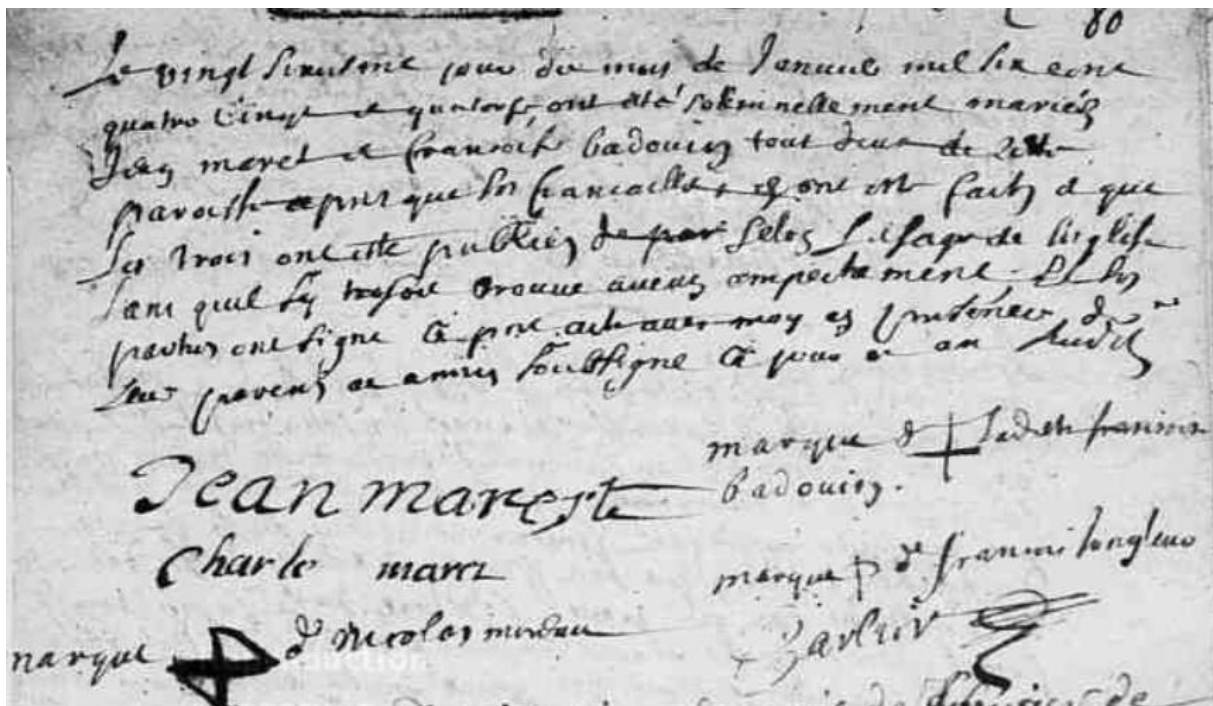 80
Le vingt sixiesme jour du mois de Janvier mil six cent
quatre vingt et quatorse, ont été solemnellement mariés
Jean maret et francoise badouin tout deux de cette
paroisse apres que les fiancailles en ont été faites et que
les trois ont esté publiés de par selon l'usage de leglise
sans quil sy soit trouvé aucun empechement. Et les
parties ont signé ce pnt acte avec moy en presence de
leurs parens et amis soubsigné ce jour et an susdit
marque de ladite francoise
badouin.
Jean mareste
Charle marez
marque de francois longleux
marque de Nicolas moreau